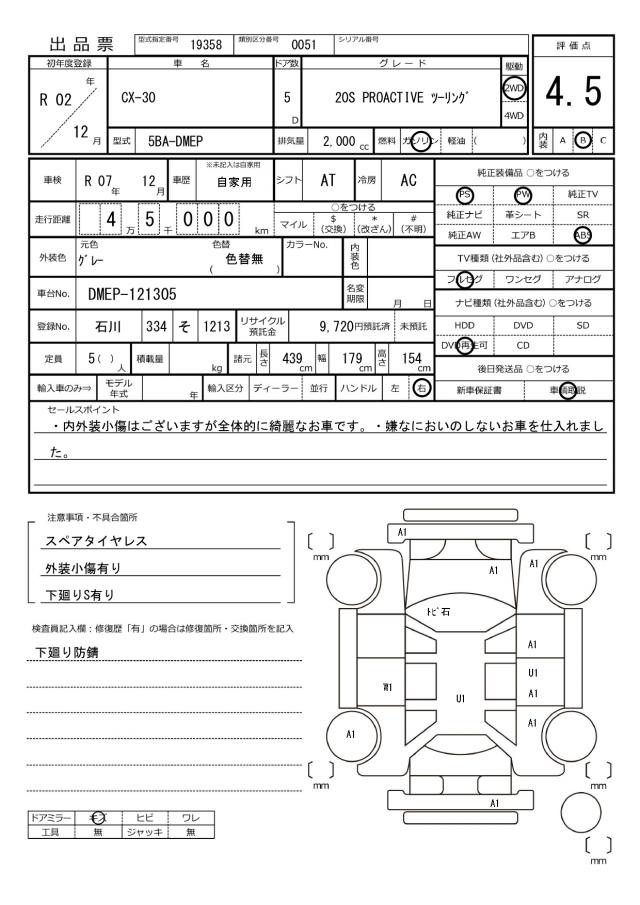 出品票
型式指定番号 19358 類別区分番号 0051 シリアル番号
初年度登録 車名 ドア数 グレード 駆動 評価点
R 02 年 12 月
CX-30 5 D 20S PROACTIVE ツーリング 2WD 4WD
4.5
型式 5BA-DMEP 排気量 2,000 cc 燃料 ガソリン 軽油 ( ) 内装 A B C
車検 R 07 年 12 月 車歴 ※未記入は自家用 自家用 シフト AT 冷房 AC
純正装備品 ○をつける
PS PW 純正TV
純正ナビ 革シート SR
純正AW エアB ABS
走行距離 4 万 5 千 0 0 0 km ○をつける
マイル $ (交換) * (改ざん) # (不明)
外装色 元色 グレー 色替 ( 色替無 ) カラーNo. 内装色
TV種類 (社外品含む) ○をつける
フルセグ ワンセグ アナログ
車台No. DMEP-121305 名変期限 月 日
ナビ種類 (社外品含む) ○をつける
HDD DVD SD
DVD再生可 CD
登録No. 石川 334 そ 1213 リサイクル預託金 9,720円預託済 未預託
定員 5 ( ) 人 積載量 kg 諸元 長さ 439 cm 幅 179 cm 高さ 154 cm
後日発送品 ○をつける
新車保証書 車輌取説
輸入車のみ⇒ モデル年式 年 輸入区分 ディーラー 並行 ハンドル 左 右
セールスポイント
・内外装小傷はございますが全体的に綺麗なお車です。・嫌なにおいのしないお車を仕入れまし
た。
注意事項・不具合箇所
スペアタイヤレス
外装小傷有り
下廻りS有り
検査員記入欄：修復歴「有」の場合は修復箇所・交換箇所を記入
下廻り防錆
ドアミラー キズ ヒビ ワレ
工具 無 ジャッキ 無
A1
mm
mm
A1
A1
トビ石
A1
U1
A1
W1
U1
A1
A1
mm
mm
A1
mm